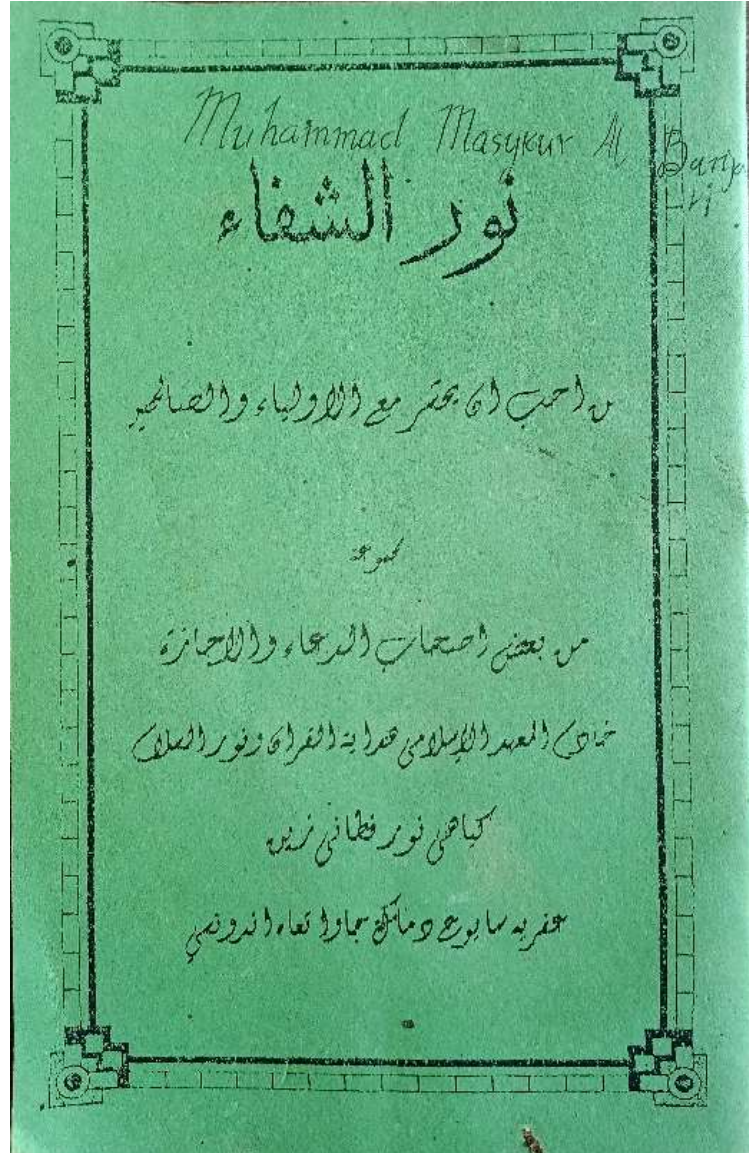 Muhammad Masykur Al Banjari
نور الشفاء
من احب ان يحشر مع الاولياء والصالحين
مجموعة
من بعض اصحاب الدعاء والاجازة
خادم المعهد الإسلامى هداية القران ونور السلام
كياهى نور فطانى زين
سايوع دماك جاوا تعاه اندونسي